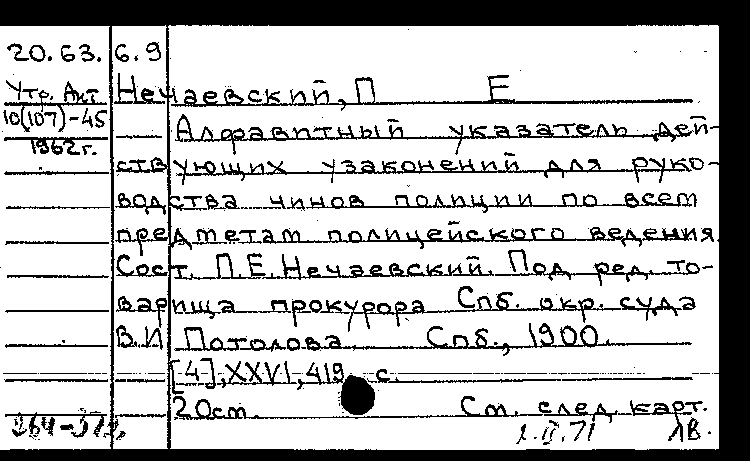 20.63. 6.9
Утр. Акт Нечаевский, П Е
10(107)-45 Алфавитный указатель дей-
1962г.
ствующих узаконений для руко-
водства чинов полиции по всем
предметам полицейского ведения
Сост. П.Е.Нечаевский. Под ред. то-
варища прокурора Спб. окр. суда
В.И Потолова. Спб., 1900.
[4],XXVI,419 с.
20см. См. след. карт.
2.IV.71 ЛВ.